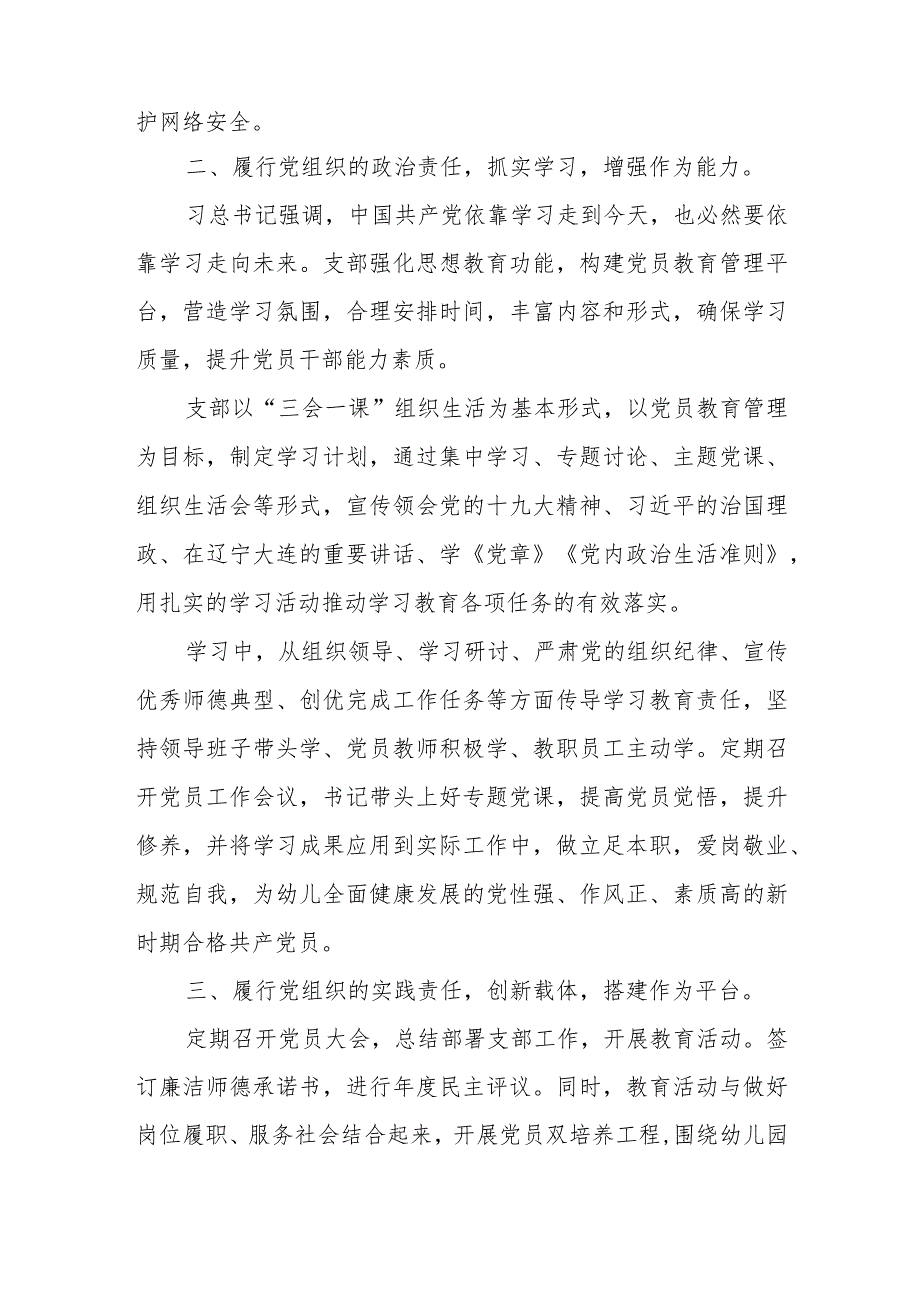 护网络安全。
二、履行党组织的政治责任，抓实学习，增强作为能力。
习总书记强调，中国共产党依靠学习走到今天，也必然要依
靠学习走向未来。支部强化思想教育功能，构建党员教育管理平
台，营造学习氛围，合理安排时间，丰富内容和形式，确保学习
质量，提升党员干部能力素质。
支部以“三会一课”组织生活为基本形式，以党员教育管理
为目标，制定学习计划，通过集中学习、专题讨论、主题党课、
组织生活会等形式，宣传领会党的十九大精神、习近平的治国理
政、在辽宁大连的重要讲话、学《党章》《党内政治生活准则》，
用扎实的学习活动推动学习教育各项任务的有效落实。
学习中，从组织领导、学习研讨、严肃党的组织纪律、宣传
优秀师德典型、创优完成工作任务等方面传导学习教育责任，坚
持领导班子带头学、党员教师积极学、教职员工主动学。定期召
开党员工作会议，书记带头上好专题党课，提高党员觉悟，提升
修养，并将学习成果应用到实际工作中，做立足本职，爱岗敬业、
规范自我，为幼儿全面健康发展的党性强、作风正、素质高的新
时期合格共产党员。
三、履行党组织的实践责任，创新载体，搭建作为平台。
定期召开党员大会，总结部署支部工作，开展教育活动。签
订廉洁师德承诺书，进行年度民主评议。同时，教育活动与做好
岗位履职、服务社会结合起来，开展党员双培养工程,围绕幼儿园